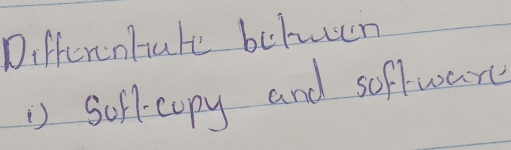 Differentiate between
i) Soft-copy and software